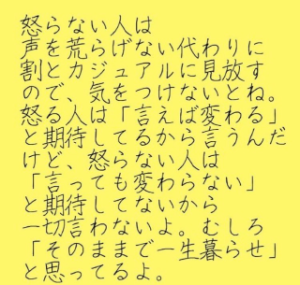 怒らない人は
声を荒らげない代わりに
割とカジュアルに見放す
ので、気をつけないとね。
怒る人は「言えば変わる」
と期待してるから言うんだ
けど、怒らない人は
「言っても変わらない」
と期待してないから
一切言わないよ。むしろ
「そのままで一生暮らせ」
と思ってるよ。